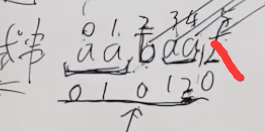 0 1 2 3 4 5
aabaa
0 1 0 1 2 0